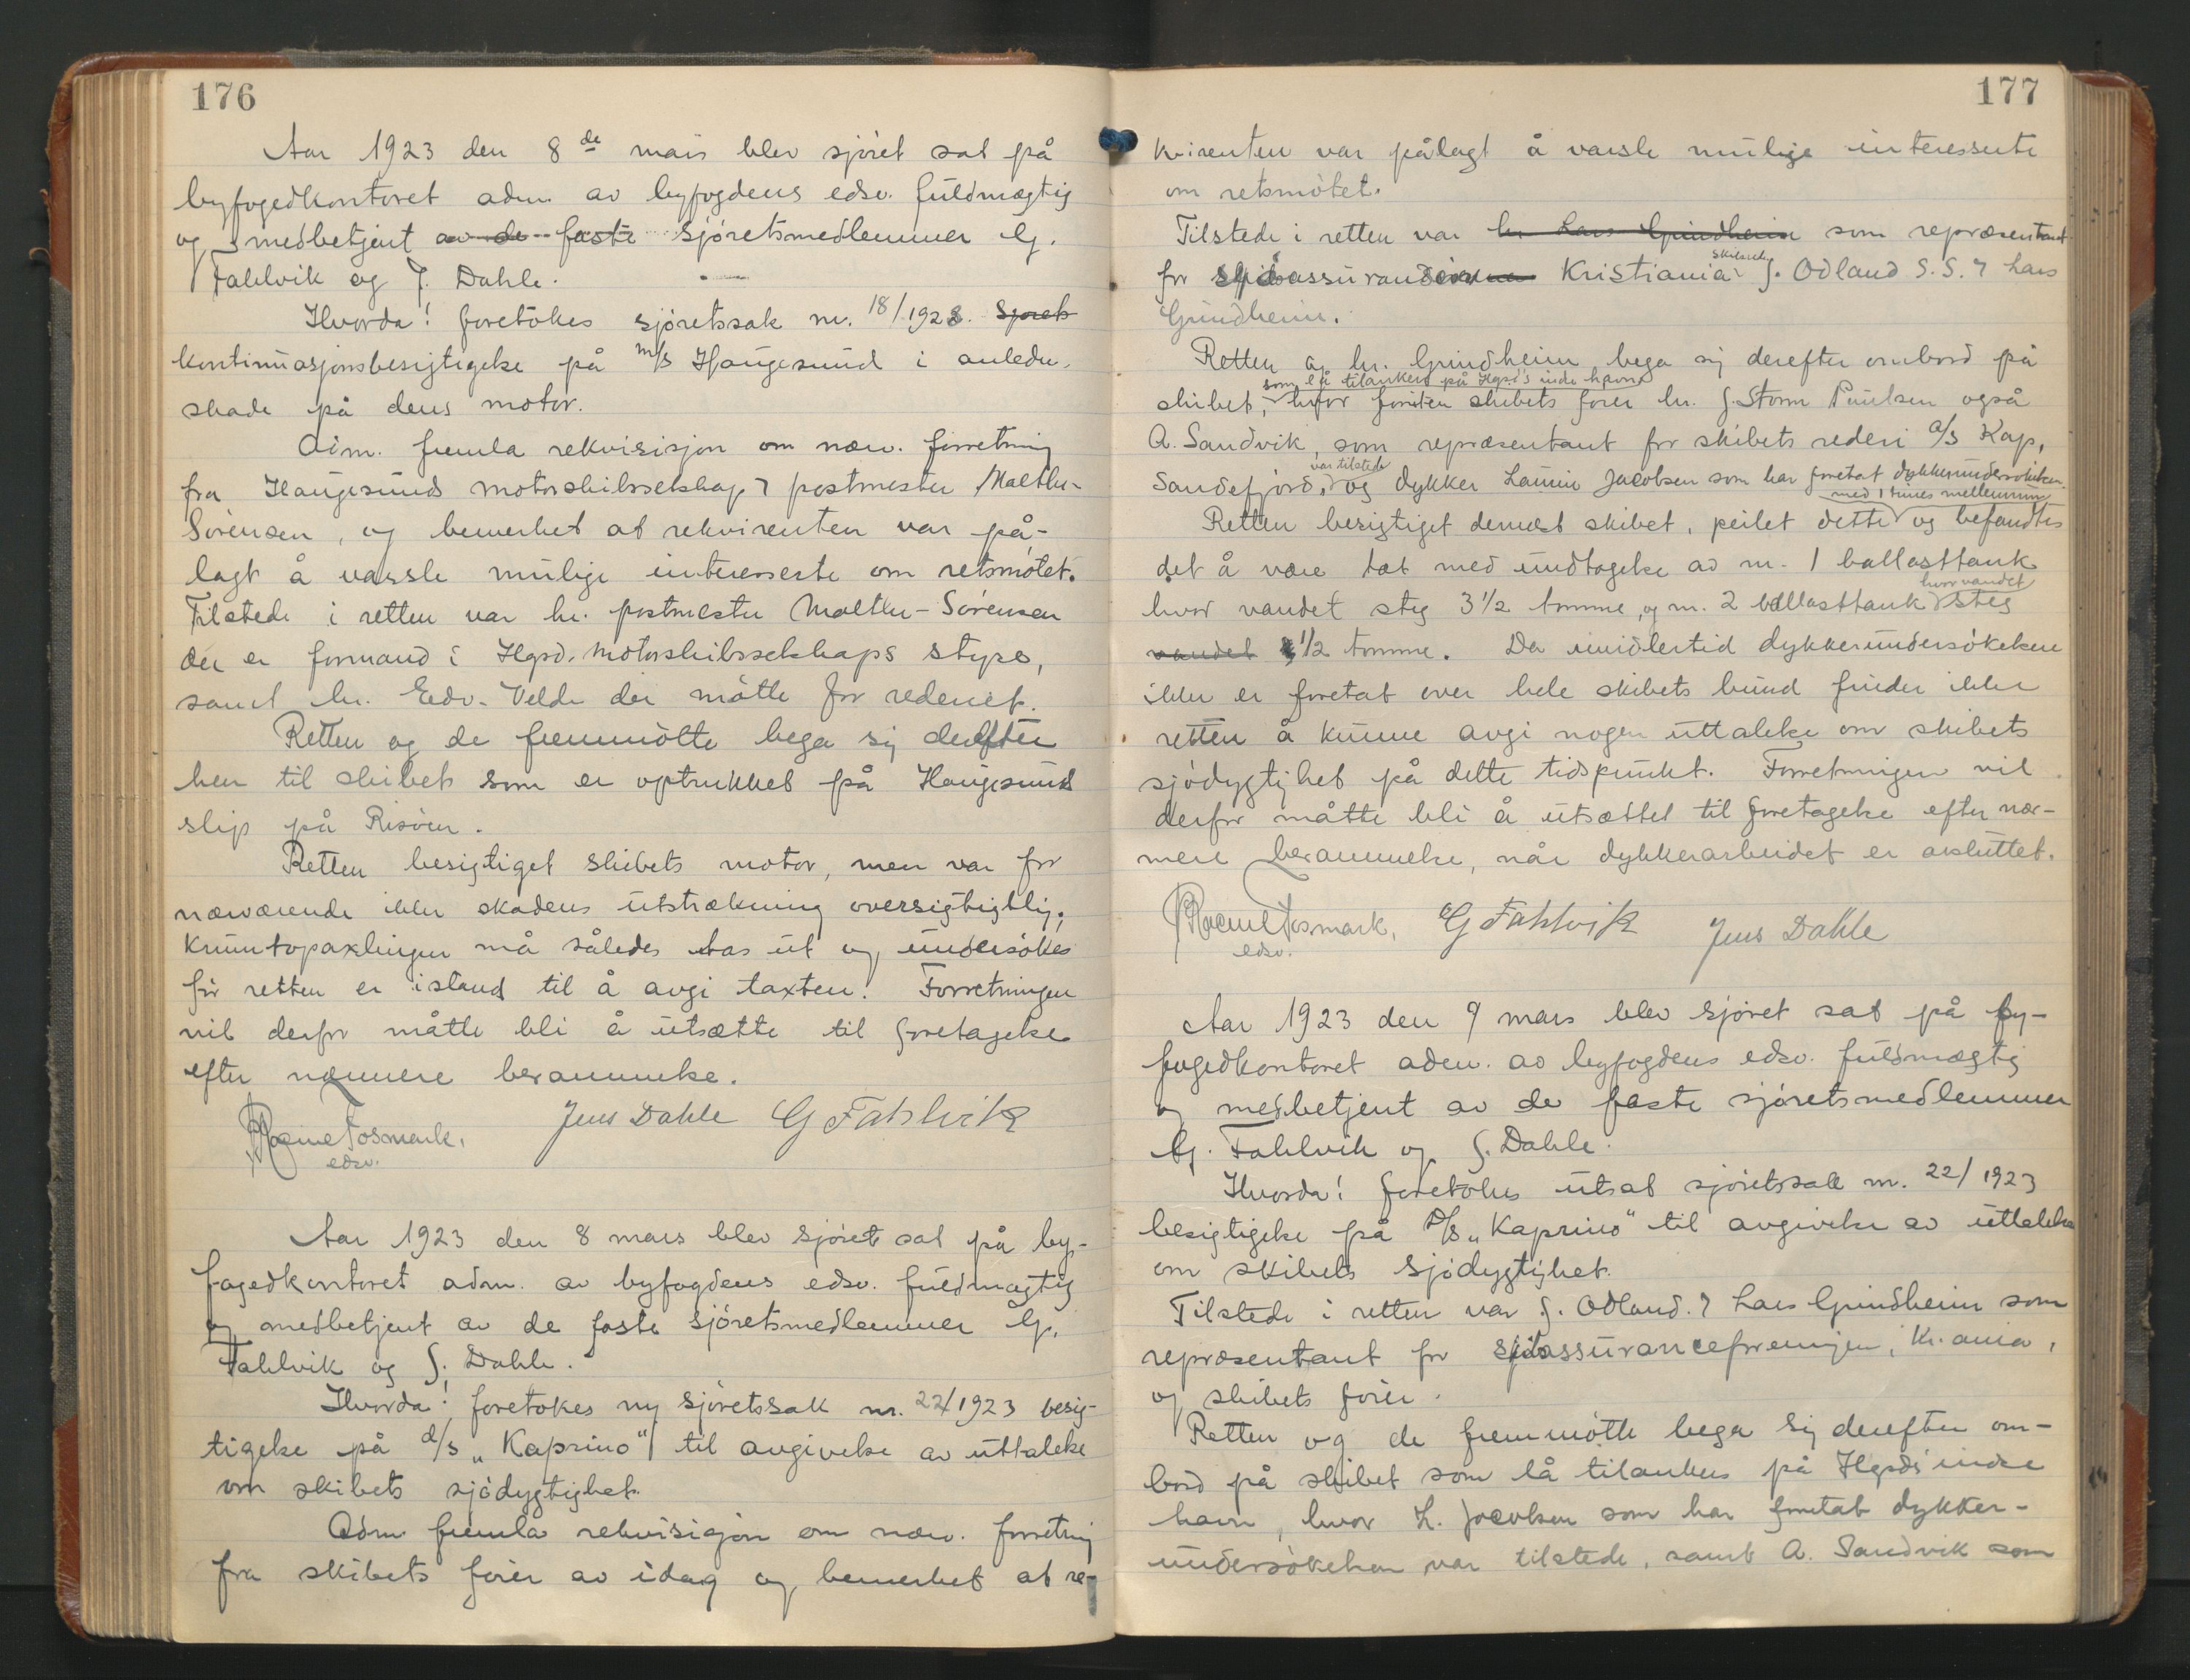 176
Aar 1923 den 8de mars blev sjöret sat på
byfogedkontoret adm. av byfogdens edsv. fuldmægtig
og medbetjent av de faste sjöretsmedlemmer G.
Fahlvik og J. Dahle.
Hvorda! foretokes sjöretssak nr. 18/1922. Sjörets
kontinuasjonsbesigtigelse på m/s Haugesund i anledn.
skade på dens motor.
Adm. fremla rekvisisjon om nærv. forretning
fra Haugesunds motorskibsselskap v postmester Malthe-
Sörensen, og bemerket at rekvirenten var på-
lagt å varsle mulige interesserte om retsmötet.
Tilstede i retten var hr. postmester Malthe-Sörensen
der er formand i Hgsd. Motorskibsselskaps styre,
samt hr. Edv. Velde der mötte for rederiet.
Retten og de fremmötte bega sig derefter
hen til skibet som er optrukket på Haugesunds
slip på Risöen.
Retten besigtiget skibets motor, men var for
nærværende ikke skadens utstrækning oversigtigtlig,
krumtapaxlingen må således tas ut og undersökes
för retten er istand til å avgi taxten. Forretningen
vil derfor måtte bli å utsætte til foretagelse
efter nærmere berammelse.
Fosmark, Jens Dahle G Fahlvik
edsv.
Aar 1923 den 8 mars blev sjöret sat på by-
fogedkontoret adm. av byfogdens edsv. fuldmægtig
og medbetjent av de faste sjöretsmedlemmer G.
Fahlvik og J. Dahle.
Hvorda! foretokes ny sjöretssak nr. 22/1923 besig-
tigelse på d/s „Kaprino" til avgivelse av uttalelse
om skibets sjödygtighet.
Adm fremla rekvisisjon om nærv. forretning
fra skibets förer av idag og bemerket at re-
177
kvirenten var pålagt å varsle mulige interesserte
om retsmötet.
Tilstede i retten var hr Lars Grindheim som repræsentant
for skibsassuransen Kristiania J. Odland S.S. v Lars
Grindheim.
Retten og hr. Grindheim bega sig derefter ombord på
som lå tilankers på Hgsd's indre havn
skibet, hvor foruten skibets förer hr. J. Storm Paulsen også
A. Sandvik, som repræsentant for skibets rederi a/s Kap,
var tilstede
Sandefjord, og dykker Laurin Jacobsen som har foretat dykkerundersökelsen.
med 1 times mellemrum
Retten besigtiget dernæst skibet, peilet dette og befandtes
det å være tæt med undtagelse av nr. 1 ballasttank
hvor vandet
hvor vandet steg 3 1/2 tomme, og nr. 2 ballasttank steg
vandet 1/2 tomme. Da imidlertid dykkerundersökelsen
ikke er foretat over hele skibets bund finder ikke
retten å kunne avgi nogen uttalelse om skibets
sjödygtighet på dette tidspunkt. Forretningen vil
derfor måtte bli å utsættet til foretagelse efter nær-
mere berammelse, når dykkerarbeidet er avsluttet.
Fosmark, G Fahlvik Jens Dahle
edsv.
Aar 1923 den 9 mars blev sjöret sat på by-
fogedkontoret adm. av byfogdens edsv. fuldmægtig
og medbetjent av de faste sjöretsmedlemmer
G. Fahlvik og J. Dahle.
Hvorda! foretokes utsat sjöretssak nr. 22/1923
besigtigelse på D/s „Kaprino" til avgivelse av uttalelse
om skibets sjödygtighet.
Tilstede i retten var J. Odland. v Lars Grindheim som
repræsentant for skibsassuranceforeningen, Kr.ania,
og skibets förer.
Retten og de fremmötte bega sig derefter om-
bord på skibet som lå tilankers på Hgsds indre
havn, hvor L. Jacobsen som har foretat dykker-
undersökelsen var tilstede, samt A. Sandvik som